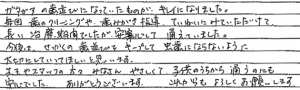 ガタガタの歯並びになっていたものが、キレイになりました。
毎回 歯のクリーニングや、歯みがき指導、ていねいにしていただけて、
長い治療期間でしたが、安心して 通うていました。
今後は、せっかくの歯並びを キープして 虫歯にならないように
大切にしていってほしいと思います。
先生やスタッフの方々 みなさん やさしくて、子供のうちから 通うのにも
安心でした。 ありがとうございます。 これからも よろしくお願いします